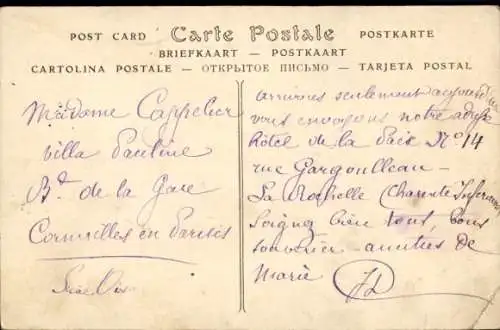 POST CARD Carte Postale POSTKARTE
BRIEFKAART — POSTKAART
CARTOLINA POSTALE — ОТКРЫТОЕ ПИСЬМО — TARJETA POSTAL
Madame Cappelier
villa Pauline
Bd. de la Gare
Cormeilles en Parisis
Seine Oise
arrivées seulement aujourd'hui
vous envoyons notre adresse
hôtel de la Paix N° 14
rue Gargoulleau —
La Rochelle (Charente Inférieure
Soignez bien tous, bons
souvenirs amitiés de
Marie JD